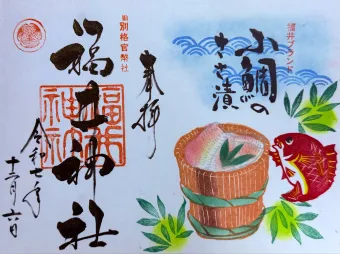 奉拝
旧別格官幣社
福井神社
令和七年
十二月六日
福井ブランド
小鯛の
ささ漬
福井神社